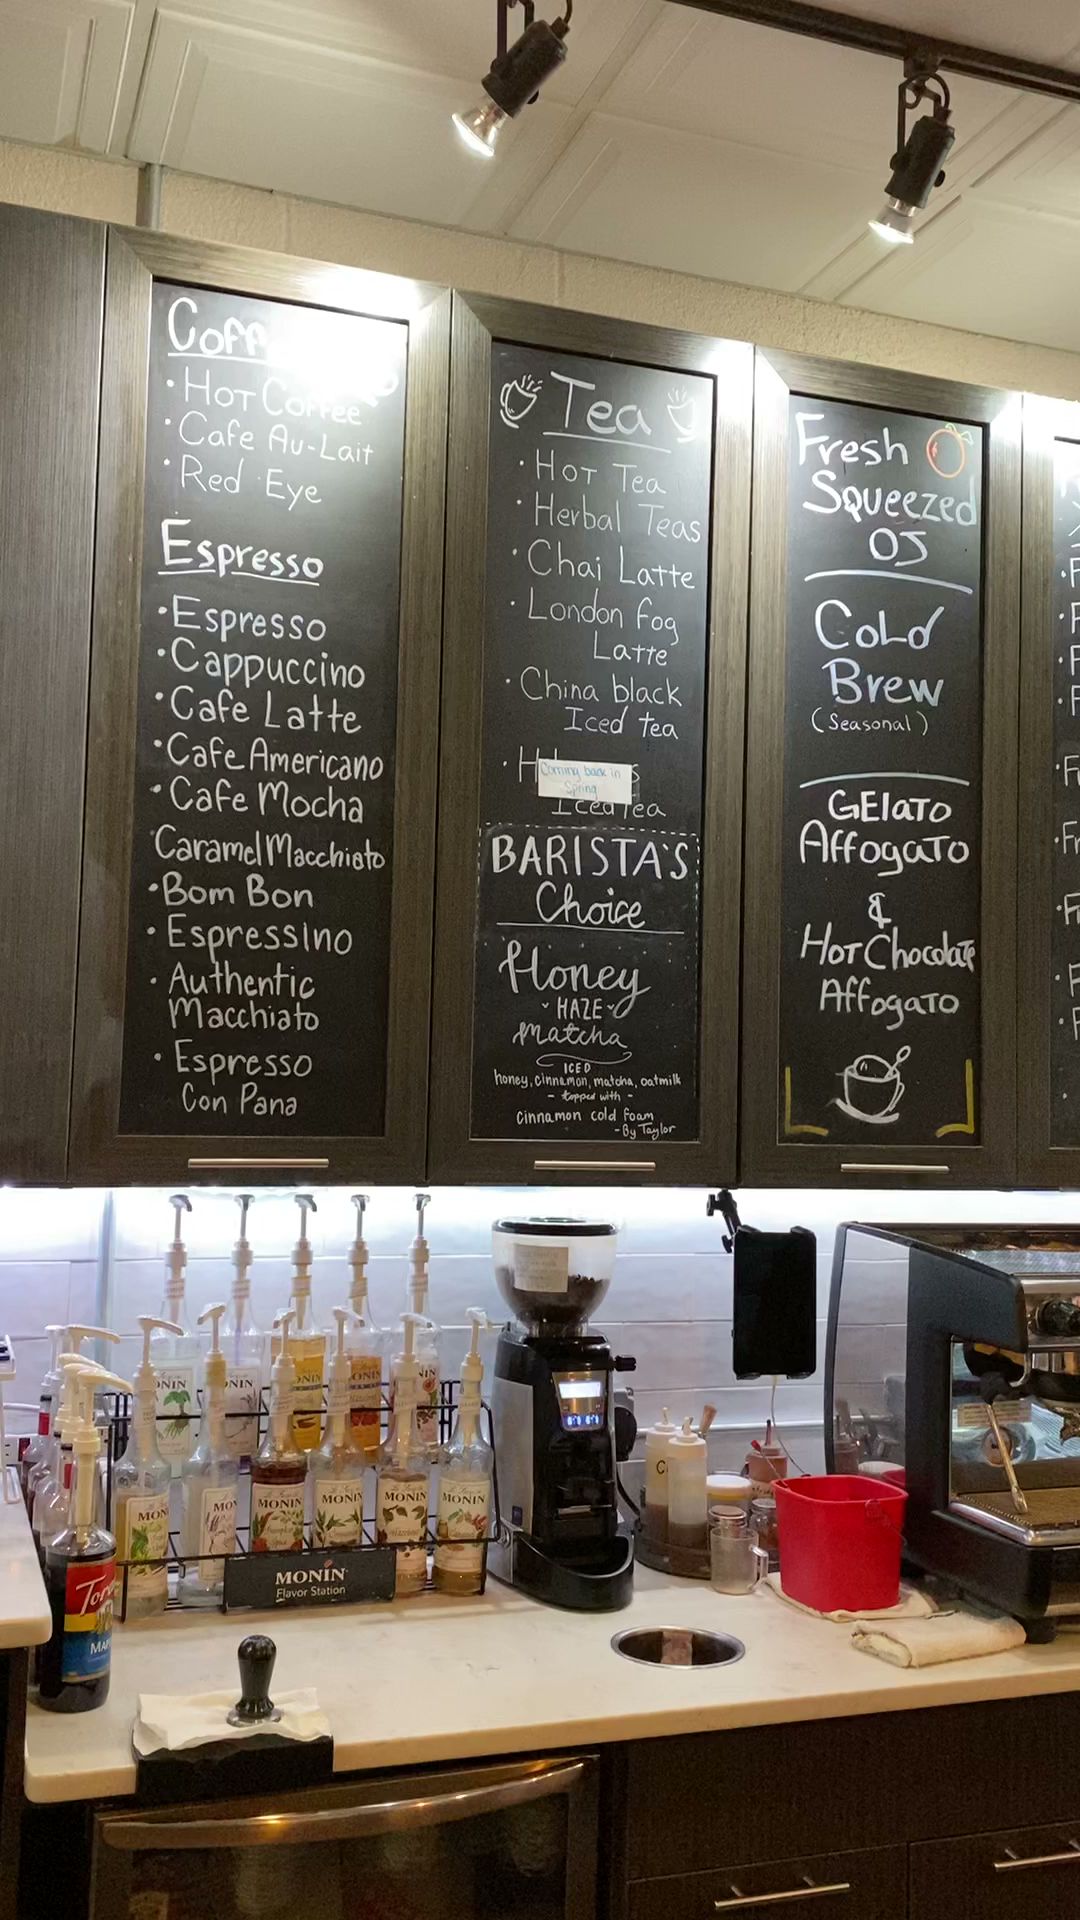 Coff
• Hot Coffee
• Cafe Au-Lait
• Red Eye
Espresso
• Espresso
• Cappuccino
• Cafe Latte
• Cafe Americano
• Cafe Mocha
Caramel Macchiato
• Bom Bon
• Espressino
• Authentic
Macchiato
• Espresso
Con Pana
Tea
• Hot Tea
• Herbal Teas
• Chai Latte
• London Fog
Latte
• China black
Iced tea
Coming back in
Spring
Iced Tea
BARISTA'S
Choice
Honey
- HAZE -
Matcha
ICED
honey, cinnamon, matcha, oatmilk
- topped with -
cinnamon cold foam
- By Taylor
Fresh
Squeezed
OJ
Cold
Brew
(Seasonal)
GElato
Affogato
&
Hot Chocolate
Affogato
MONIN
MONIN
MONIN
MONIN
MONIN
Flavor Station